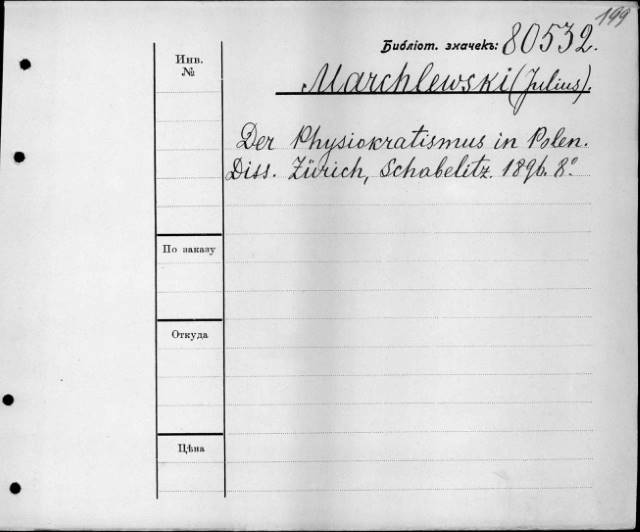 199
Библіот. значекъ: 80532.
Инв.
№
Marchlewski (Julius).
Der Physiokratismus in Polen.
Diss. Zürich, Schabelitz. 1896. 8º
По заказу
Откуда
Цѣна